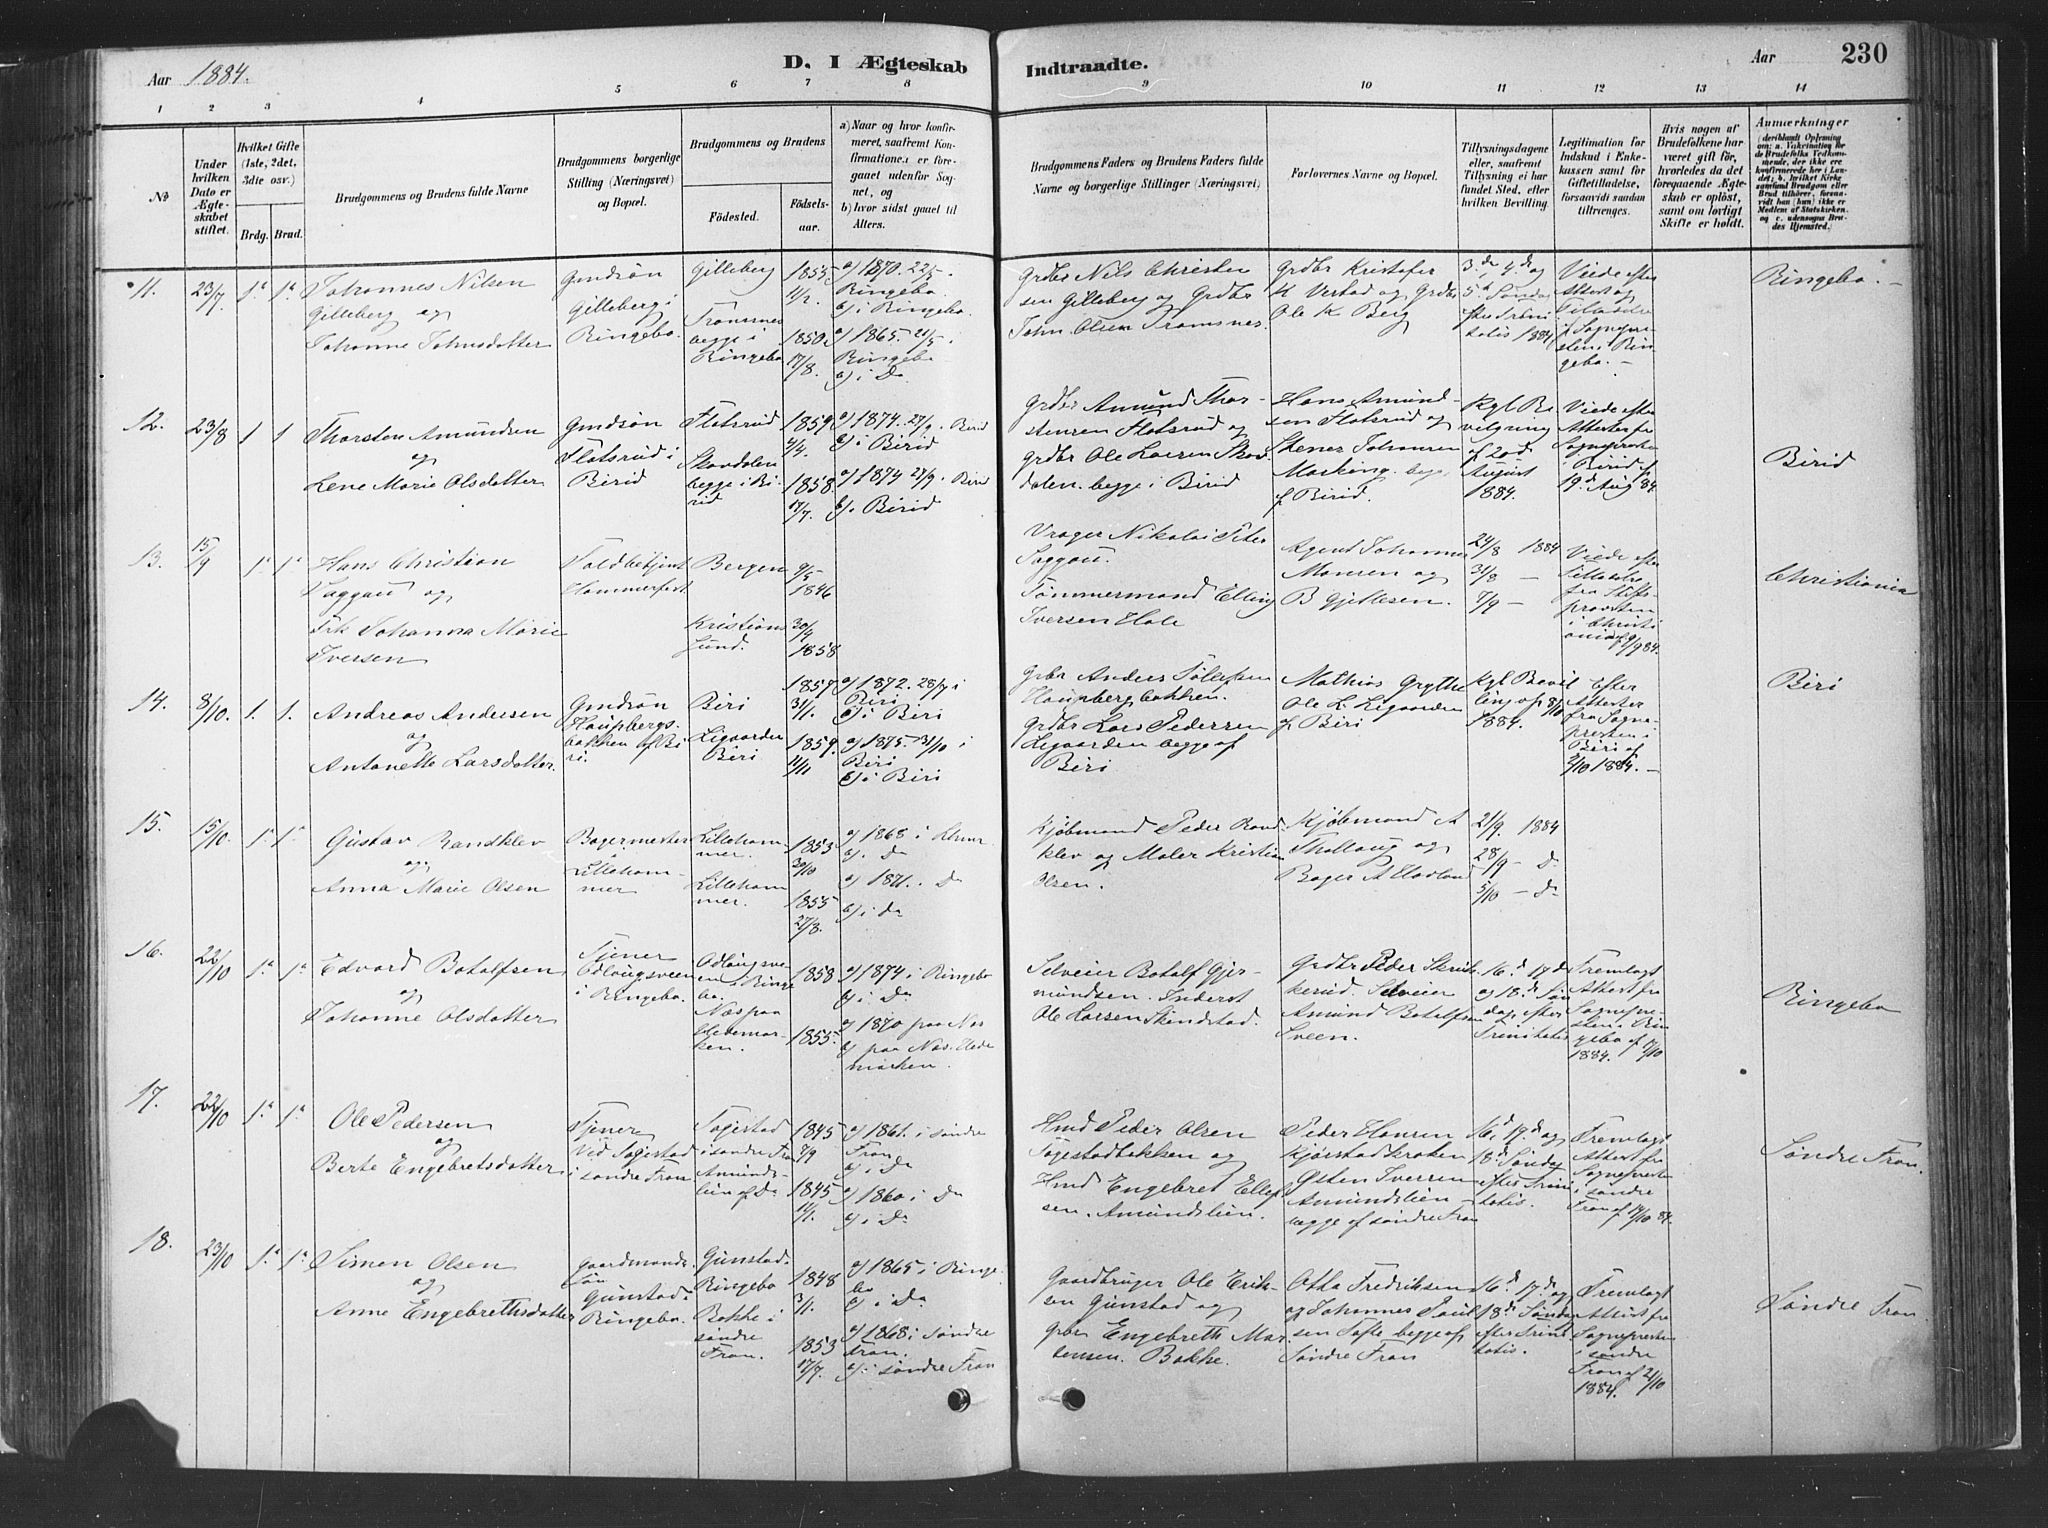 Aar 1884.
D. I Ægteskab Indtraadte.
Aar 230
1 2 3 4 5 6 7 8 9 10 11 12 13 14
No
Under hvilken Dato er Ægteskabet stiftet.
Hvilket Gifte (1ste, 2det, 3die osv.)
Brdg. Brud.
Brudgommens og Brudens fulde Navne
Brudgommens borgerlige Stilling (Næringsvei) og Bopæl.
Brudgommens og Brudens
Fødested.
Fødselsaar.
a) Naar og hvor konfirmeret, saafremt Konfirmationen er foregaaet udenfor Sognet, og
b) hvor sidst gaaet til Alters.
Brudgommens Faders og Brudens Faders fulde Navne og borgerlige Stillinger (Næringsvei)
Forlovernes Navne og Bopæl.
Tillysningsdagene eller, saafremt Tillysning ei har fundet Sted, efter hvilken Bevilling.
Legitimation for Indskud i Enkekassen samt for Giftetilladelse, forsaavidt saadan tiltrænges.
Hvis nogen af Brudefolkene har været gift før, hvorledes da det foregaaende Ægteskab er opløst, samt om lovligt Skifte er holdt.
Anmærkninger
(deriblandt Oplysning om: a. Vakcination for de Brudefolks Vedkommende, der ikke ere konfirmerede her i Landet; b. hvilket Kirkesamfund Brudgom eller Brud tilhører, forsaavidt han (hun) ikke er Medlem af Statskirken, og c. udensogns Brudes Hjemsted.)
11. 23/7 1ª 1ª
Johannes Nilsen
Gilleberg og
Johanne Johnsdatter
Gmdsøn
Gilleberg i
Ringebo.
Gilleberg
Tromsnes
begge i
Ringebo
1855
4/2.
1850.
17/8.
a) 1870. 22/5.
Ringebo.
b) i Ringebo.
a) 1865. 21/5 i
Ringebo
b) i Do
Grdbr Nils Christen
sen Gilleberg og Grdbr
John Olsen Tromsnes.
Grdbr Kristofer
K Verstad og Grdbr
Ole K Berg
3.de, 4.de og
5.te Søndag
efter Trini
tatis 1884
Viede efter
Attest og
Tilladelse
f Sognepre
sten i Rin
gebo. –
Ringebo. –
12. 23/8 1 1
Thorsten Amundsen
og
Lene Marie Olsdatter
Gmdsøn
Flotsrud i
Birid
Flotsrud
Skovdalen
begge i Bi
rid
1859
4/4.
1858
17/7.
a) 1874. 27/9. Birid
b) i Birid
a) 1874 27/9. Birid
b). Birid
Grdbr Amund Thor
stensen Flotsrud og
grdbr Ole Larsen Skov
dalen. begge i Birid
Hans Amund
sen Flotsrud og
Stener Johansen
begge
f Birid.
Kgl Be
vilgning
af 20 d
August
1884.
Viede efter
Attester fra
Sognepresten
i Birid af
19.d Aug 84.
Birid
13. 15/9 1ª 1ª
Hans Christian
Saggau og
Frk Johanna Marie
Iversen
Toldbetjent
Hammerfest
Bergen
Kristians
sund.
9/5
1846
30/4
1858
Vrager Nikolai Peter
Saggau.
Tømmermand Elling
Iversen Hole
Agent Johannes
Monsen og
B Gjetlesen.
24/8 1884
31/8 –
7/9 –
Viede efter
Tilladelse
fra Stifts
provsten
i Christi
ania af 9/9 84.
Christiania
14. 8/10. 1. 1.
Andreas Andersen
og
Antonette Larsdatter.
Gmdsøn
Haugbergs
bakken af Bi
ri.
Biri
Ligaarden
Biri
1857
31/1.
1859.
11/11
a) 1872. 28/7 i
Biri
b) i Biri
a) 1875. 31/10 i
Biri
b) i Biri
Grbr Anders Tollefsen
Haugbergbakken.
Grdbr Lars Pedersen
Ligaarden begge af
Biri
Mathias Grythe
Ole L. Ligaarden
f Biri
Kgl Bevil
ling af 8/10
1884.
Efter
Attester
fra Sogne
presten i
Biri af
2/10 1884. –
Biri
15. 15/10. 1ª 1ª
Gustav Randklev
og
Anna Marie Olsen
Bagermester
i
Lilleham
mer
Lilleham
mer.
Lilleham
mer.
1853
30/10
1855
27/3.
a) 1868 i Lhmr.
b). Do
a) 1871. i Do
b) i Do
Kjøbmand Peder Rand
klev og Maler Kristian
Olsen.
Kjøbmand A
Thallaug og
Bager A Havland
21/9. 1884
28/9 – Do
5/10 – Do
16. 22/10 1ª 1ª
Edvard Botolfsen
og
Johanne Olsdatter
Tjener
Odlougsveen
i Ringebo.
Odlougsve
en i Ringe
bo.
Næs paa
Hedemar
ken.
1858
1855.
a) 1874 i Ringebo
b) i Do
a) 1870 paa Næs
b) paa Næs Hede
marken.
Selveier Botolf Gjer
mundsen. Inderst
Ole Larsen Skindstad.
Grdbr Peder Skrik
kerud. Selveier
Amund Botolfsen
Sveen.
16.d 17.d
og 18.d Søn
dag efter
Trinitatis
Fremlagt
Attest fra
Sognepre
sten i Rin
gebo af 17/10
1884.
Ringebo
17. 22/10 1ª 1ª
Ole Pedersen
og
Berte Engebretsdatter
Tjener
Ved Togestad
i søndre Fron
Togestad
i søndre Fron
Amunds
lien af Do
1845
7/9
1845
11/1.
a) 1861. i søndre
Fron
b) i Do
a) 1860 i Do
b) i Do
Hmd Peder Olsen
Togestadbakken og
Hmd Engebret Ellef
sen. Amundslien.
Peder Hansen
Kjørstadkroken
Østen Iversen
Amundslien –
begge af søndre Fron
16, 17.d og
18.d Søndag
efter Trini
tatis.
Fremlagt
Attest fra
Sognepresten
i søndre
Fron af 17/10 84.
Søndre Fron.
18. 23/10 1ª 1ª
Simen Olsen
og
Anne Engebrethsdatter
Gaardmands
søn
Gunstad i
Ringebo.
Gunstad.
Ringebo
Bakke i
søndre
Fron.
1848
3/1.
1853
17/7.
a) 1865 i Ringe
bo
b) i Do
a) 1868 i søndre
Fron.
b) i søndre Fron
Gaardbruger Ole Erik
sen Gunstad og
Grbr Engebreth Mor
tensen. Bakke.
Otto Fredriksen
og Johannes Poul
sen Tofte begge af
Søndre Fron
16.d 17.d og
18.d Søndag
efter Trini
tatis.
Fremlagt
Attest fra
Sognepresten
i søndre
Fron af 21/10
1884.
Søndre Fron